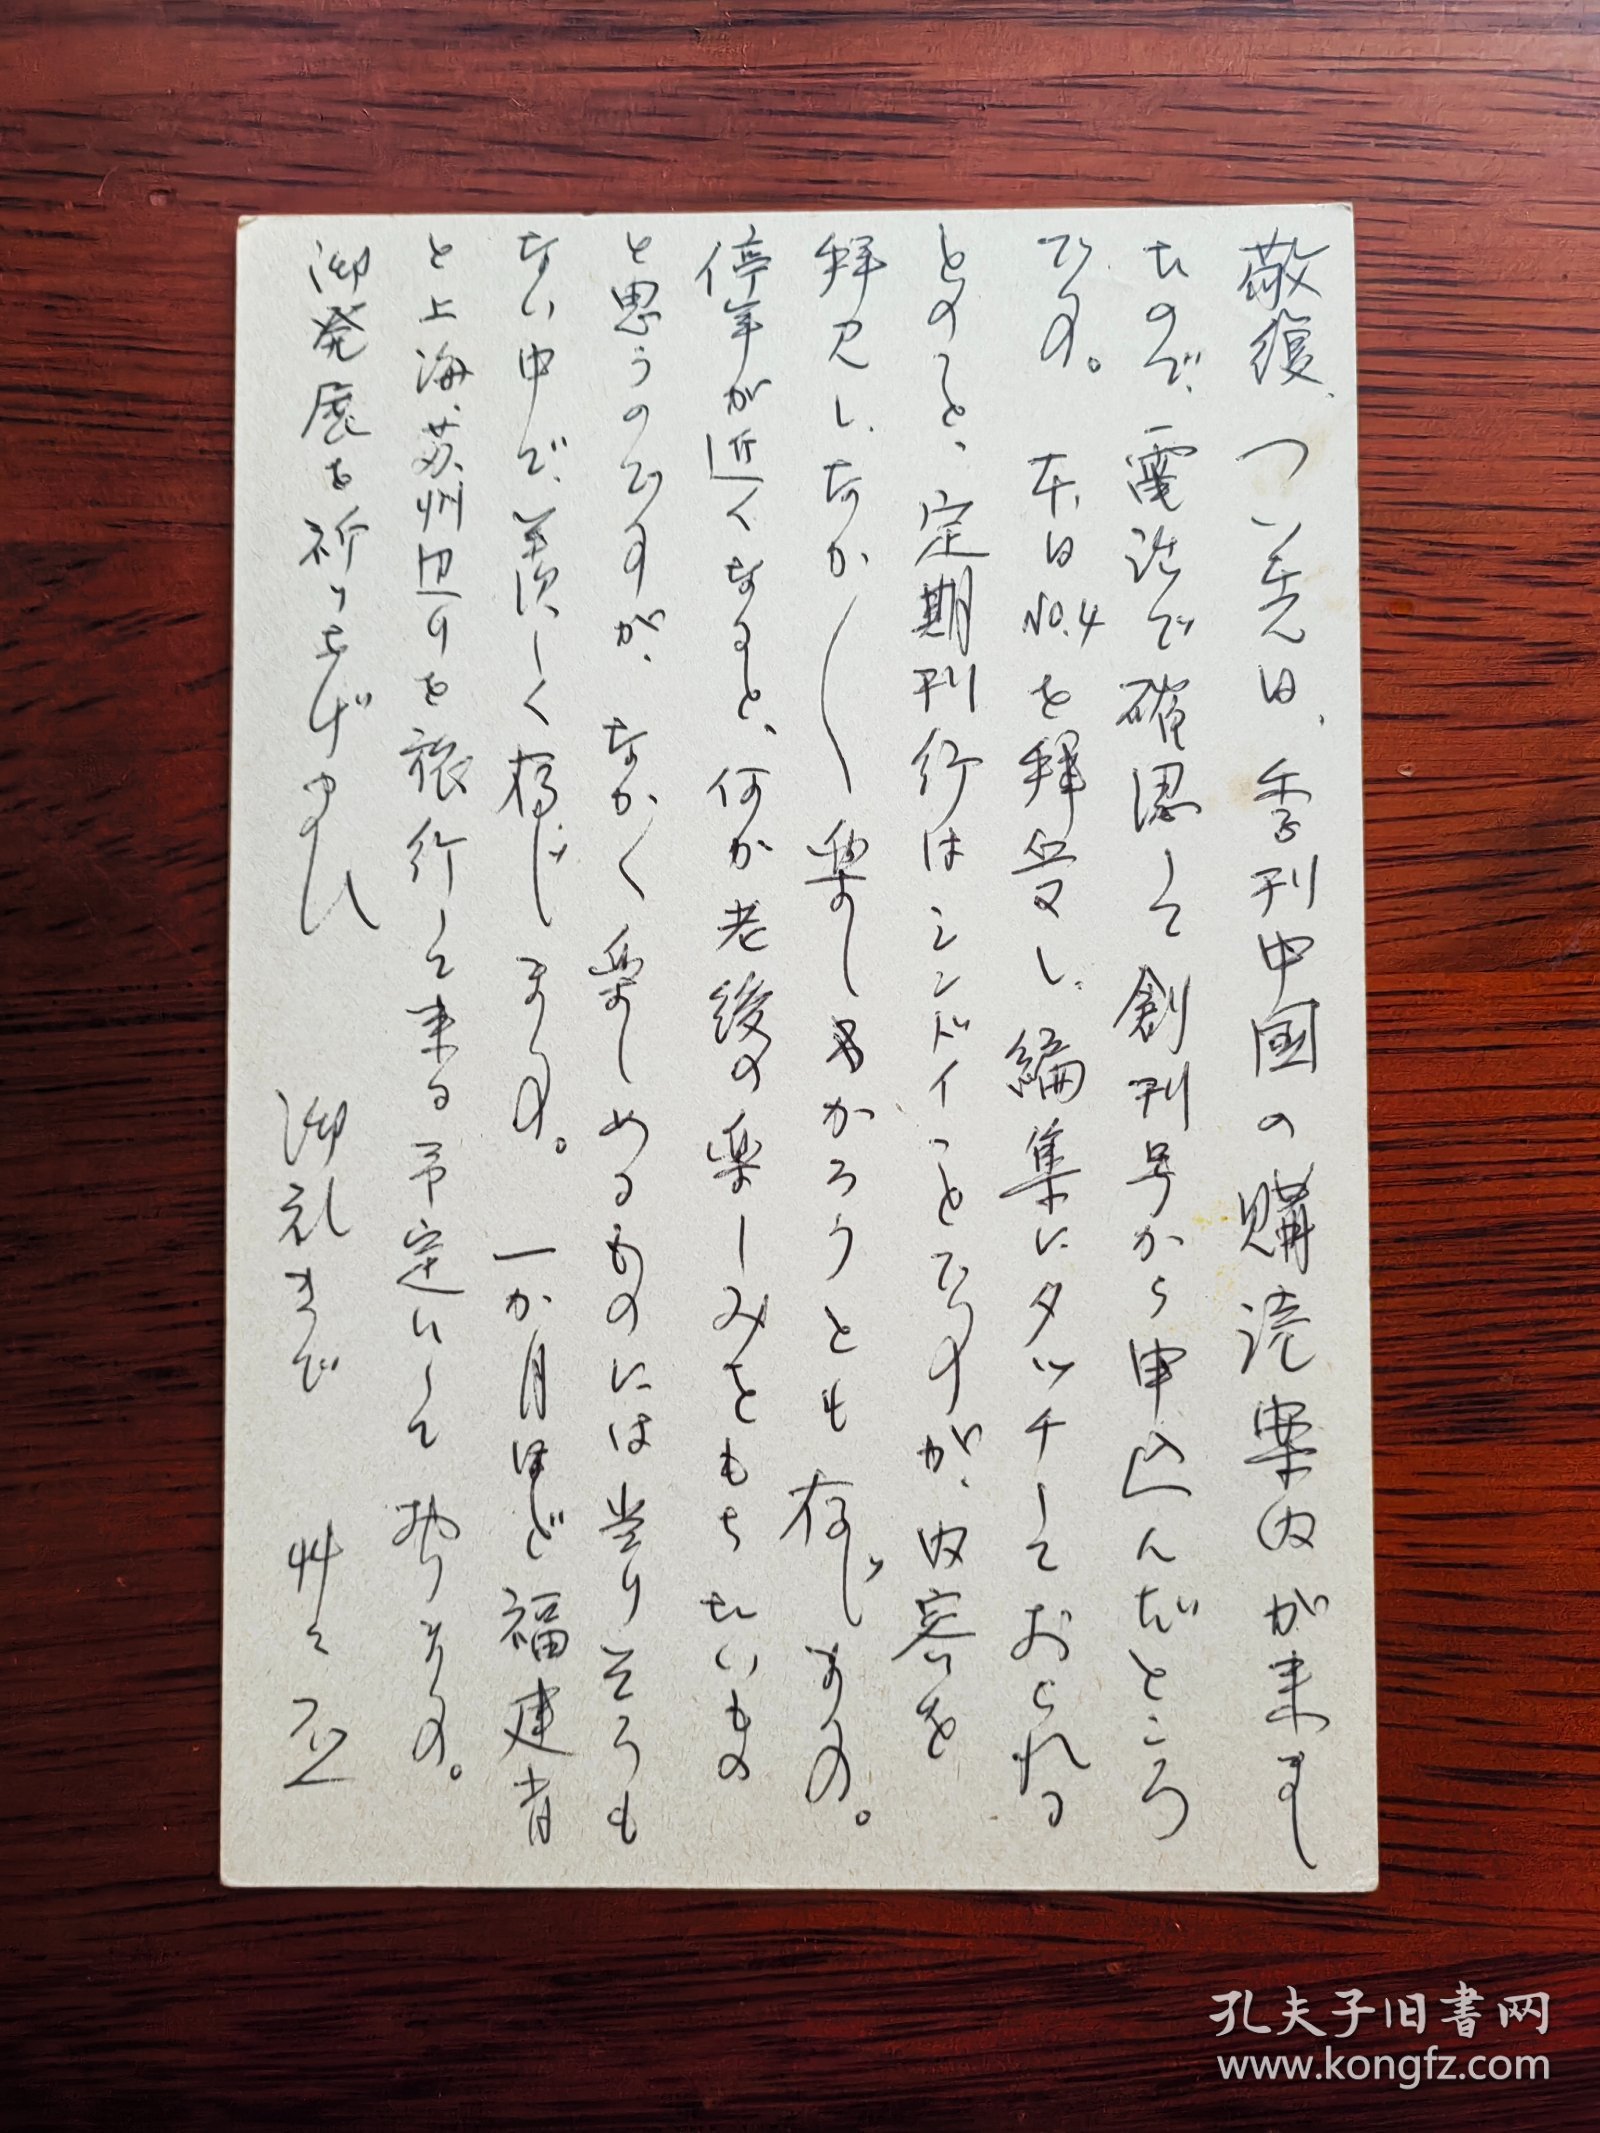 敬復、つい先日、季刊中國の購読案内が来まし
たので、電話で確認して創刊号から申込んだところ
です。本日No.4を拝受し、編集にタッチしておられる
とのこと、定期刊行はシンドイことですが、内容を
拝見し、なか〱楽しもかろうとも存じます。
停年が近くなると、何か老後の楽しみをもちたいもの
と思うのですが、なか〱楽しめるものには当りそうも
ない中で、羨しく存じます。一か月ほど福建省
と上海、蘇州辺りを旅行して来る予定にして居ります。
御発展を祈り上げます 御礼まで 艸々
孔夫子旧書网
www.kongfz.com